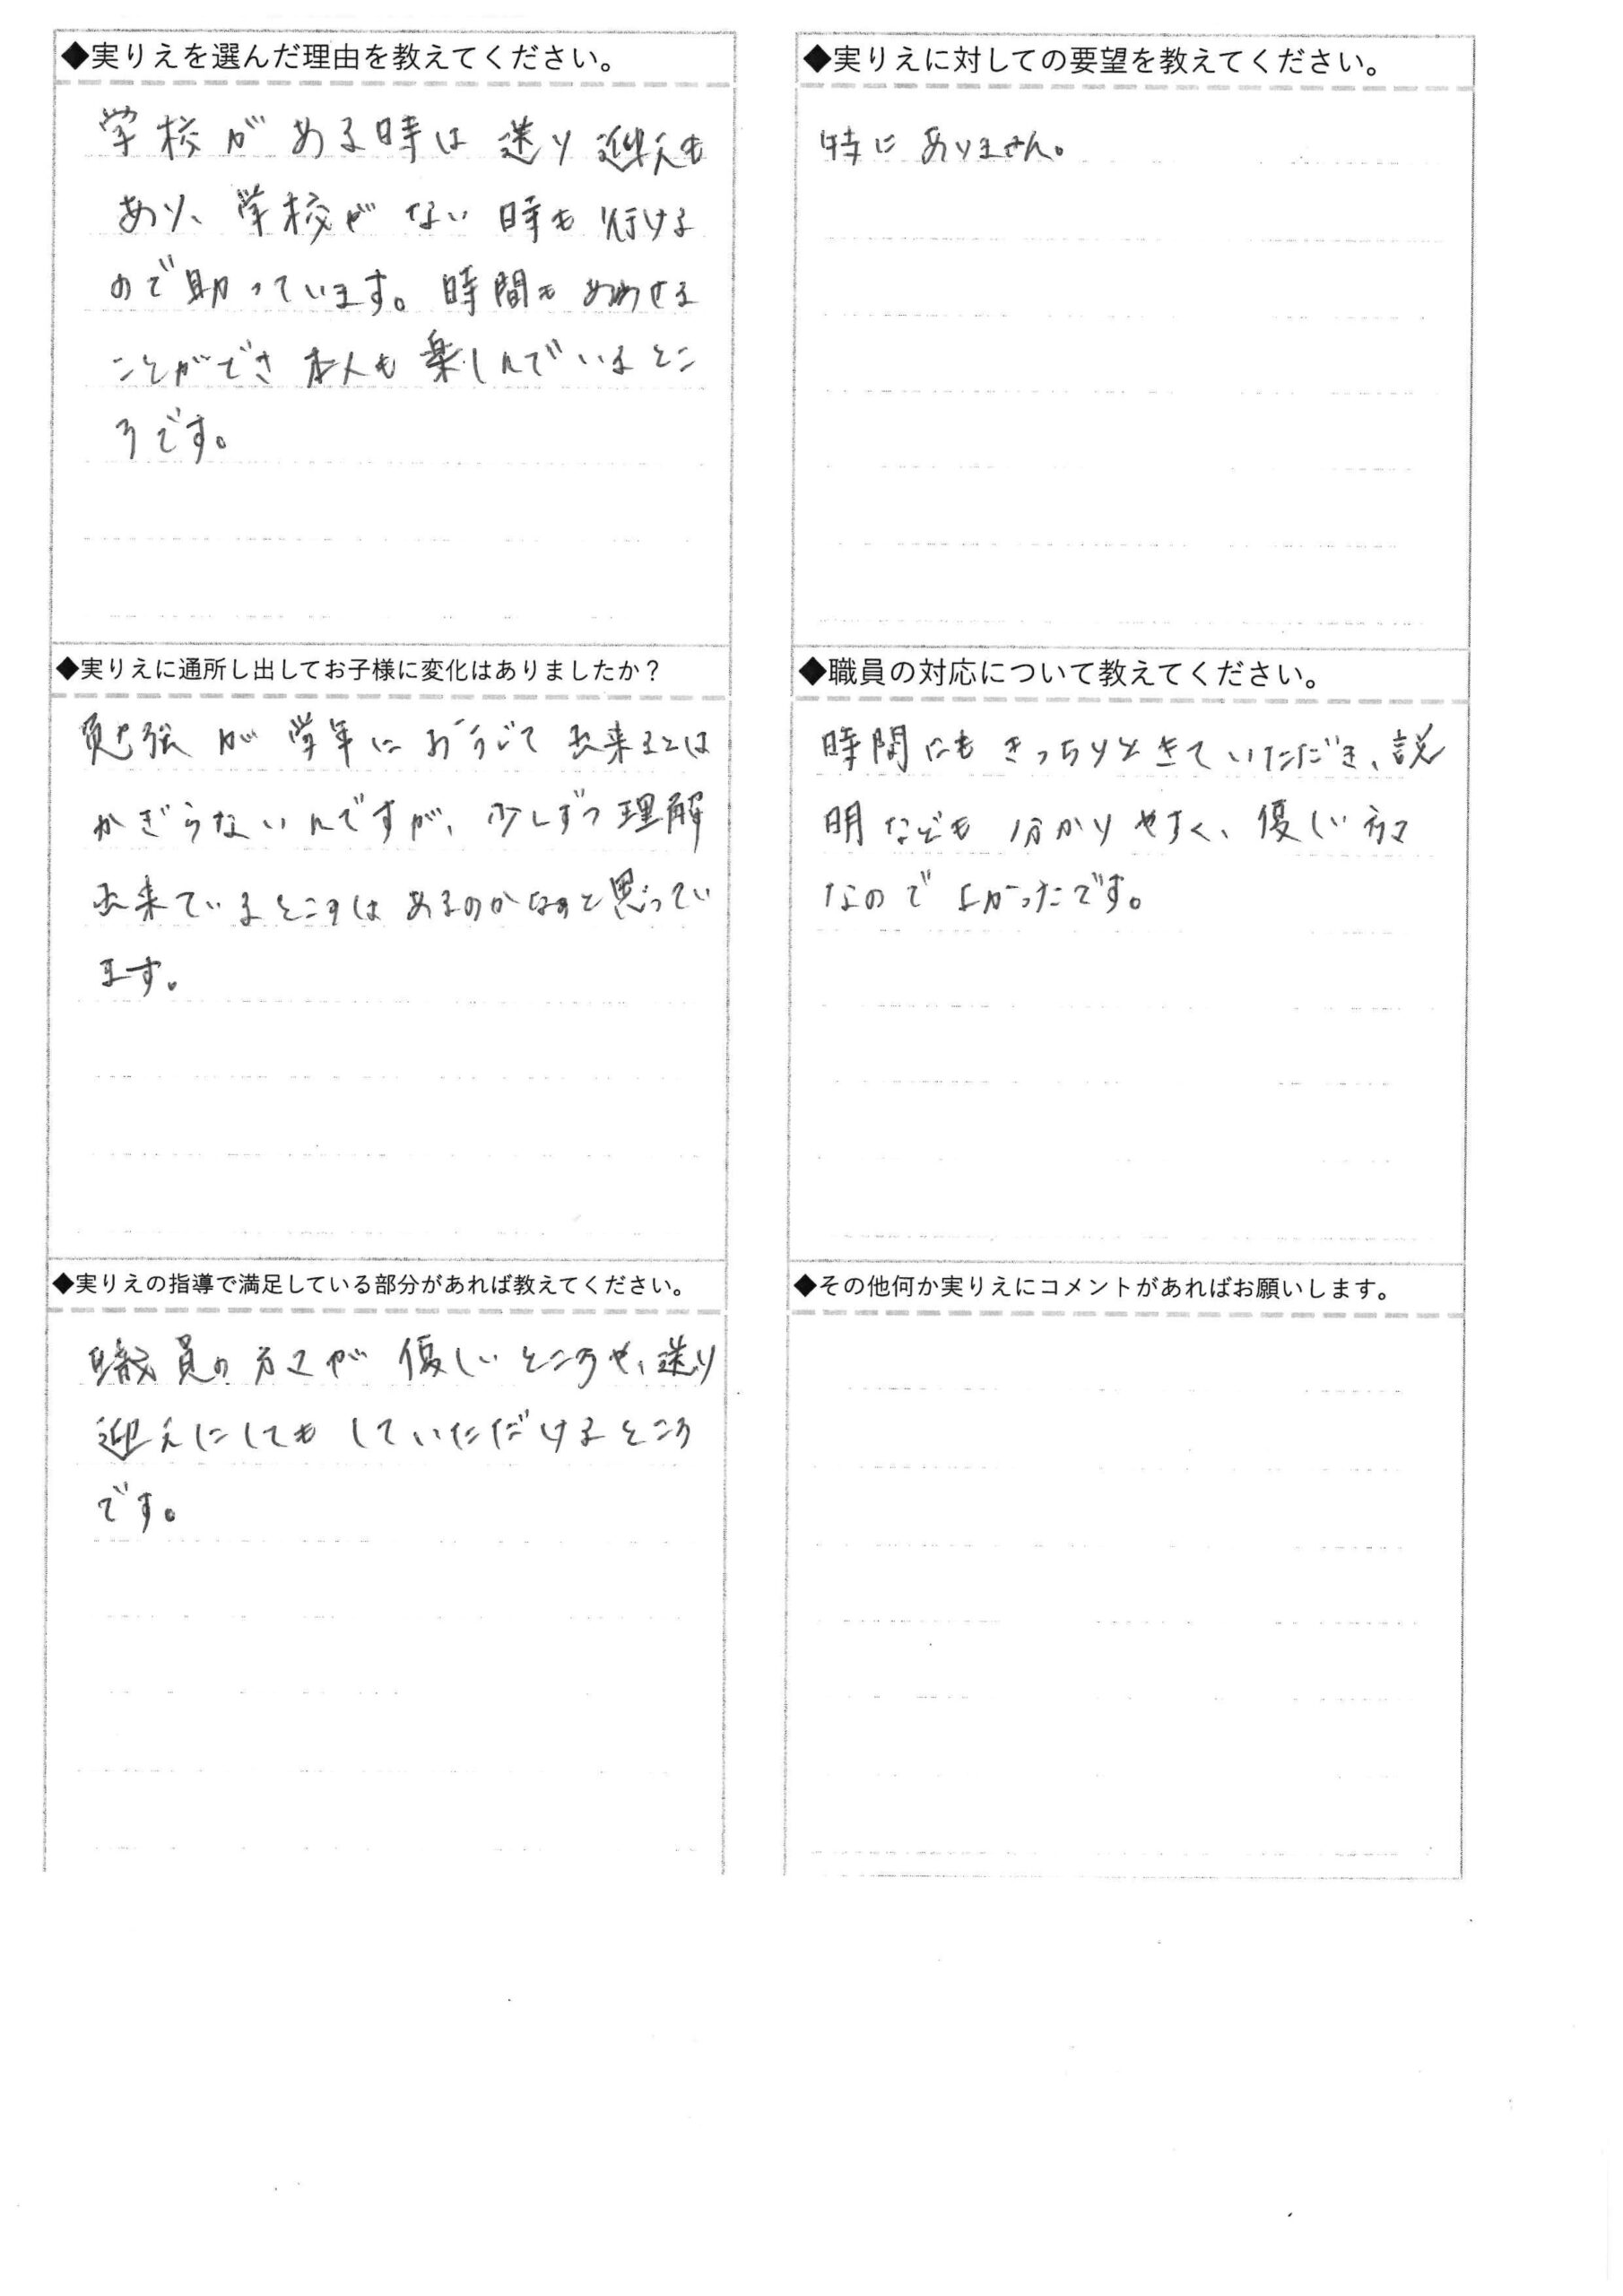 ◆実りえを選んだ理由を教えてください。
学校がある時は送り迎えも
あり、学校がない時も行ける
ので助っています。時間もあわせる
ことができ本人も楽しんでいるとこ
ろです。
◆実りえに通所し出してお子様に変化はありましたか？
勉強が学年におうじて出来るとは
かぎらないんですが、少しずつ理解
出来ているところはあるのかなぁと思ってい
ます。
◆実りえの指導で満足している部分があれば教えてください。
職員の方々が優しいところや、送り
迎えにしてもしていただけるところ
です。
◆実りえに対しての要望を教えてください。
特にありません。
◆職員の対応について教えてください。
時間にもきっちりときていただき、説
明なども分かりやすく、優しい方々
なのでよかったです。
◆その他何か実りえにコメントがあればお願いします。